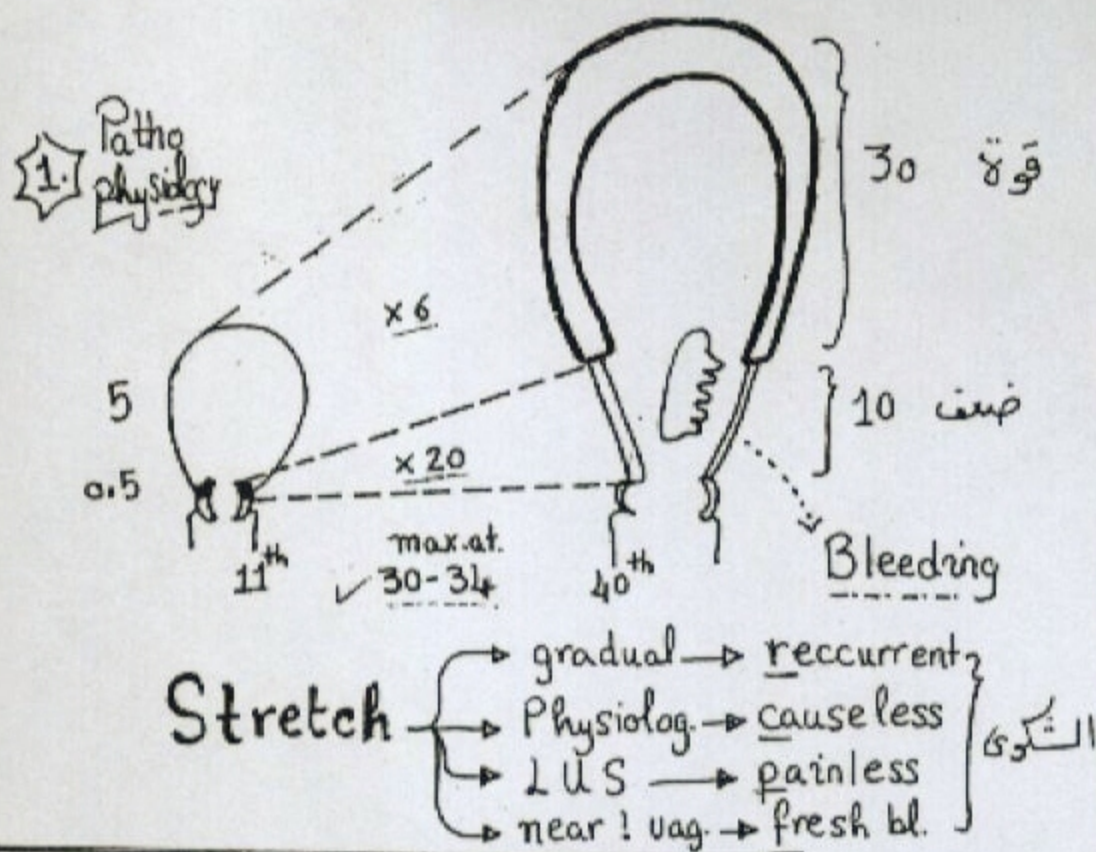 1.
Patho
physiology
30 قوة
x 6
5
10 ضعف
x 20
0.5
max.at.
11th 30-34 40th
Bleeding
Stretch
gradual → reccurrent
Physiolog. → causeless
LUS → painless
near ! vag. → fresh bl.
الشكوى